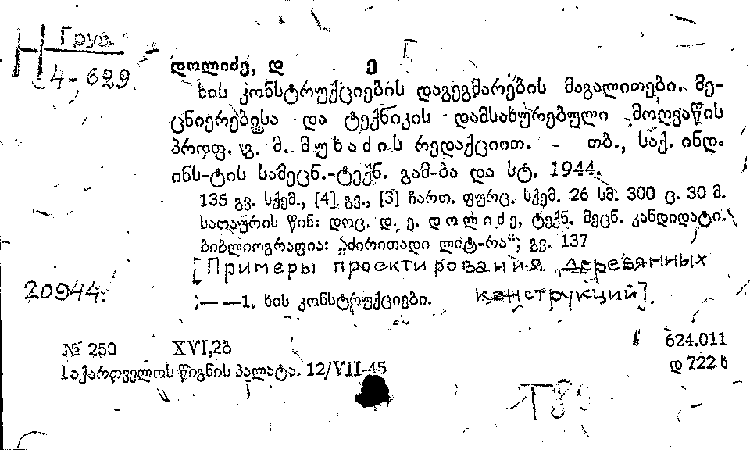 Н Груз.
4-629
დოლიძე, დ ე
ხის კონსტრუქციების დაგეგმარების მაგალითები. მე-
ცნიერებისა და ტექნიკის დამსახურებული მოღვაწის
პროფ. გ. მ. მუხაძის რედაქციით. - თბ., საქ. ინდ.
ინს-ტის სამეცნ.-ტექნ. გამ-ბა და სტ. 1944.
135 გვ. სქემ., [4] გვ., [3] ჩართ. ფურც. სქემ. 26 სმ. 300 ც. 30 მ.
სათაურის წინ: დოც. დ. ე. დოლიძე, ტექნ. მეცნ. კანდიდატი.
ბიბლიოგრაფია: „ძირითადი ლიტ-რა“; გვ. 137
[Примеры проектирования деревянных
20944.
— —1. ხის კონსტრუქციები. конструкций].
№ 250 XVI,2ბ 624.011
საქართველოს წიგნის პალატა. 12/VII-45 დ 722 ხ